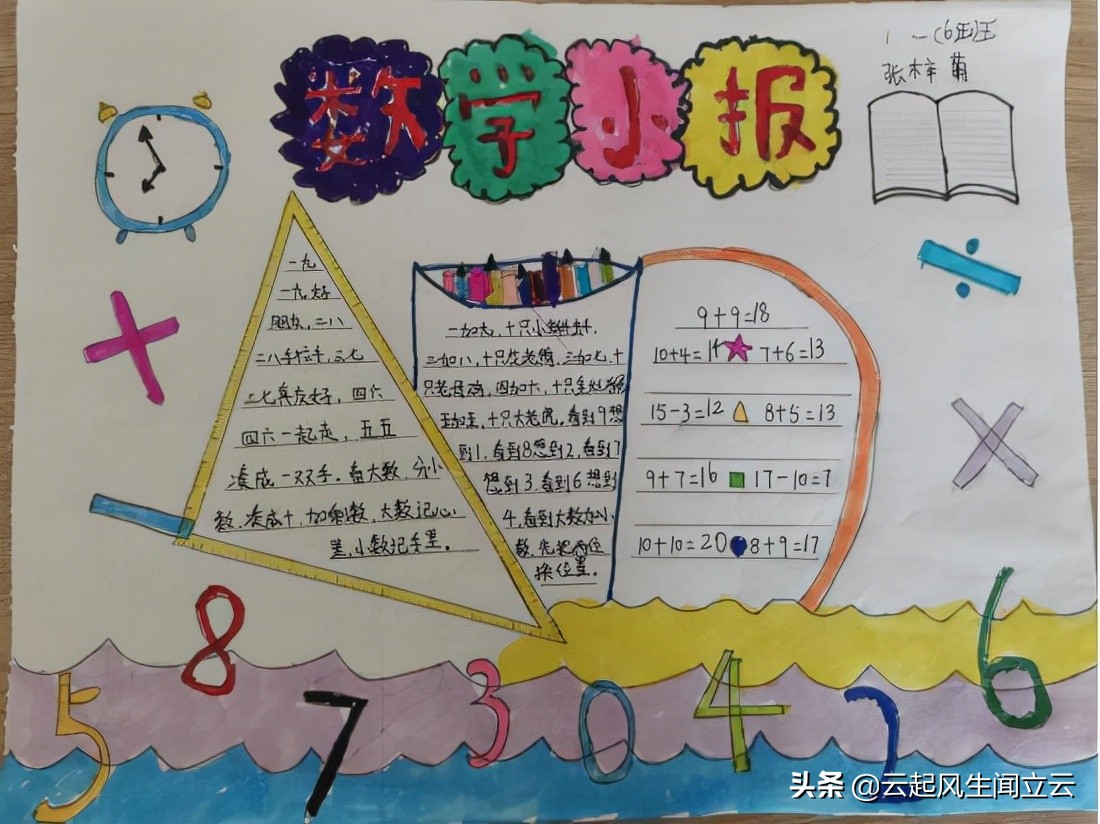 数学小报
一(6)班
张梓萌
一九
一九好
朋友,二八
二八手拉手,三七
三七真友好,四六
四六一起走,五五
凑成一双手。看大数,分小
数,凑成十,加剩数,大数记心
里,小数记手里。
一加九,十只小蝌蚪,
二加八,十只花老鸭,三加七,十
只老母鸡,四加六,十只金丝猴
五加五,十只大老虎。看到9想
到1,看到8想到2,看到7
想到3,看到6想到
4,看到大数加小
数,先把两位
换位置。
9+9=18
10+4=14 7+6=13
15-3=12 8+5=13
9+7=16 17-10=7
10+10=20 8+9=17
8
6
5
7
3
0
4
2
头条 @云起风生闻立云